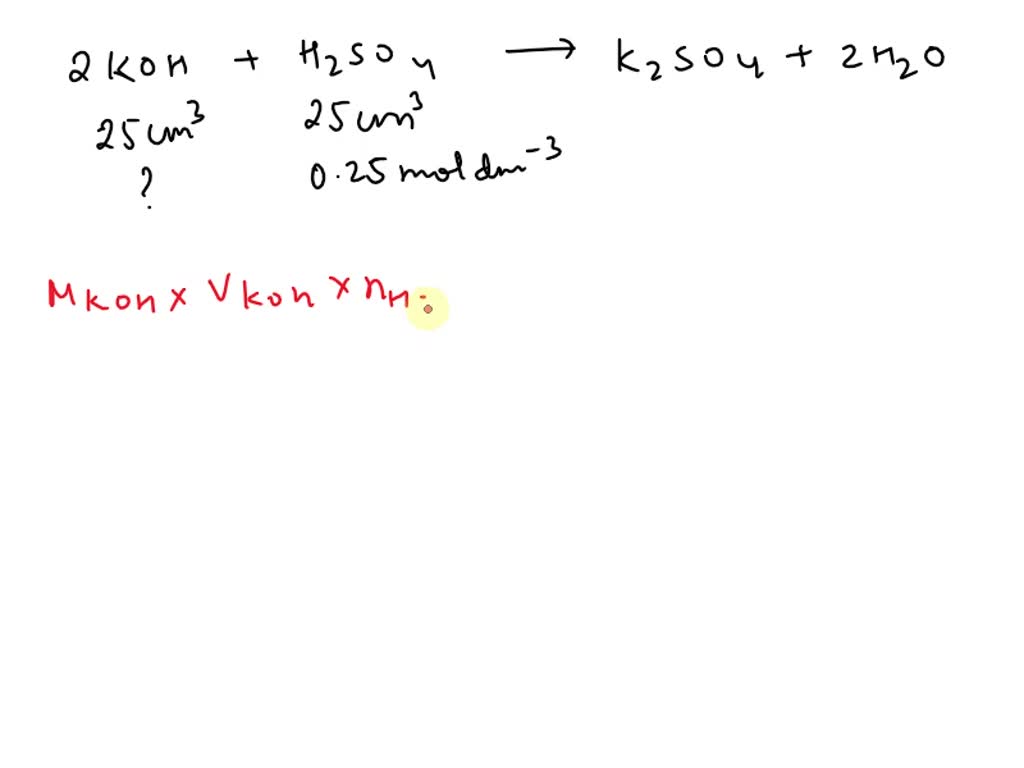 2KOH + H₂SO₄ → K₂SO₄ + 2H₂O
25cm³ 25cm³
? 0.25 mol dm⁻³
M KOH × V KOH × n H